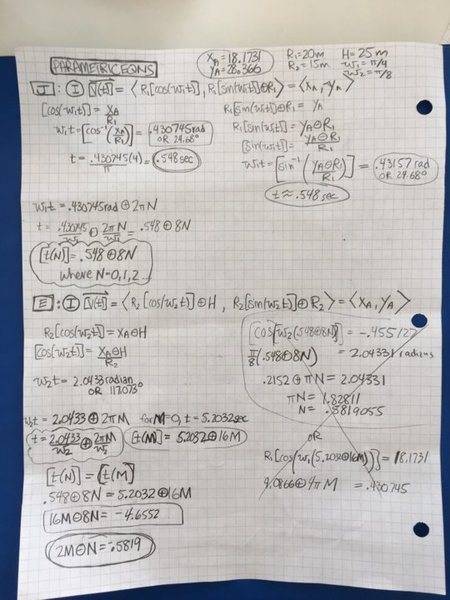 PARAMETRIC EQNS
X_A = 18.1731
Y_A = 28.366
R₁ = 20m H = 25m
R₂ = 15m w₁ = π/4
w₂ = π/8
J: ① V(t) = ⟨R₁[cos(w₁t)], R₁[sin(w₁t)]⊕R₁⟩ = ⟨X_A, Y_A⟩
[cos(w₁t)] = X_A/R₁
w₁t = [cos⁻¹(X_A/R₁)] = .430745 rad
OR 24.68°
t = .430745(4)/π = .548 sec
R₁[sin(w₁t)]⊕R₁ = Y_A
R₁[sin(w₁t)] = Y_A⊖R₁
[sin(w₁t)] = Y_A⊖R₁/R₁
w₁t = [sin⁻¹(Y_A⊖R₁/R₁)] = .43157 rad
OR 24.68°
t ≈ .548 sec
w₁t = .430745 rad ⊕ 2πN
t = .430745/w₁ ⊕ 2πN/w₁ = .548⊕8N
[t(N)] = .548⊕8N
where N=0,1,2...
E: ① V(t) = ⟨R₂[cos(w₂t)]⊕H, R₂[sin(w₂t)]⊕R₂⟩ = ⟨X_A, Y_A⟩
R₂[cos(w₂t)] = X_A⊖H
[cos(w₂t)] = X_A⊖H/R₂
w₂t = 2.0433 radian
OR 117.073°
w₂t = 2.0433⊕2πM for M=0, t = 5.2032 sec
t = 2.0433/w₂ ⊕ 2πM/w₂
[t(M)] = 5.2032⊕16M
[t(N)] = [t(M)]
.548⊕8N = 5.2032⊕16M
16M⊖8N = -4.6552
2M⊖N = -.5819
cos[w₂(.548⊕8N)] = -.455127
π/8(.548⊕8N) = 2.04331 radians
.2152⊕πN = 2.04331
πN = 1.82811
N = .5819055
OR
R₁[cos(w₁(5.2032⊕16M))] = 18.1731
4.0866⊕4πM = .430745